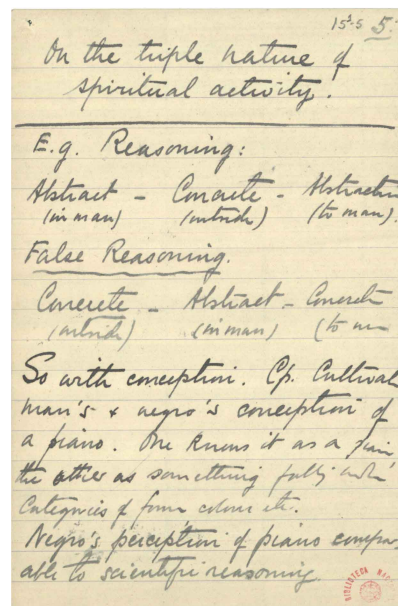 15³-5 5.
On the triple nature of
spiritual activity.
E.g. Reasoning:
Abstract - Concrete - Abstraction
(in man) (outside) (to man).
False Reasoning.
Concrete - Abstract - Concrete
(outside) (in man) (to
So with conception. Cp. Cultivat
man's & negro's conception of
a piano. One knows it as a piano
the other as something falling under
Categories of form colour etc.
Negro's perception of piano compar
able to scientific reasoning.
BIBLIOTECA NAC